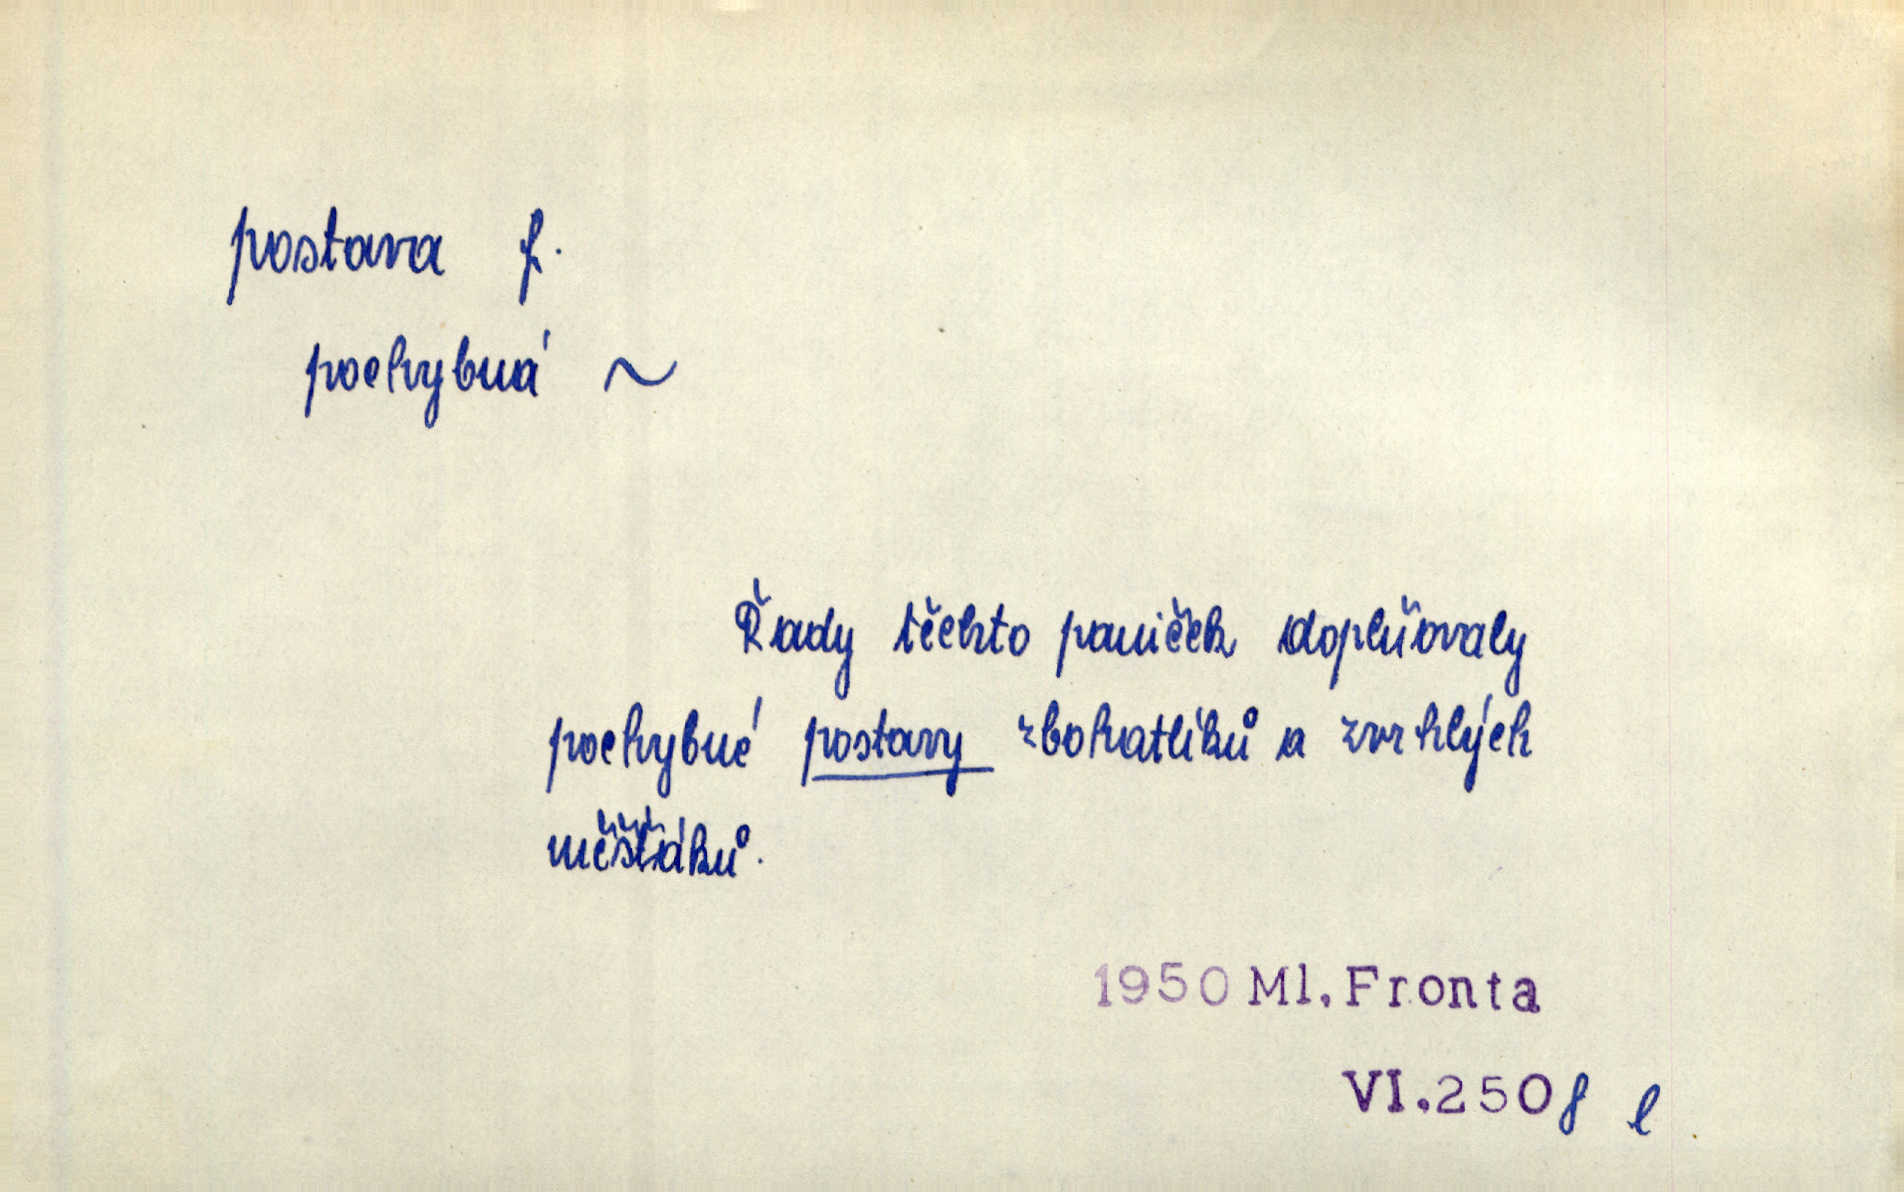 postava f.
pochybná ~
Řady těchto paniček doplňovaly
pochybné postavy zbohatlíků a zvrhlých
měšťáků.
1950 Ml. Fronta
VI.2508 l